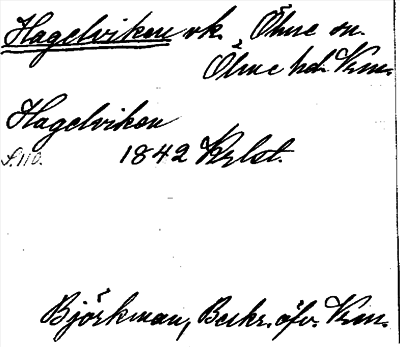 Hagelviken vk. Ölme sn.
Ölme hd. Vrm.
Hagelviken
S. 110. 1842 Krlst.
Björkman, Beskr. öfv. Vrm.